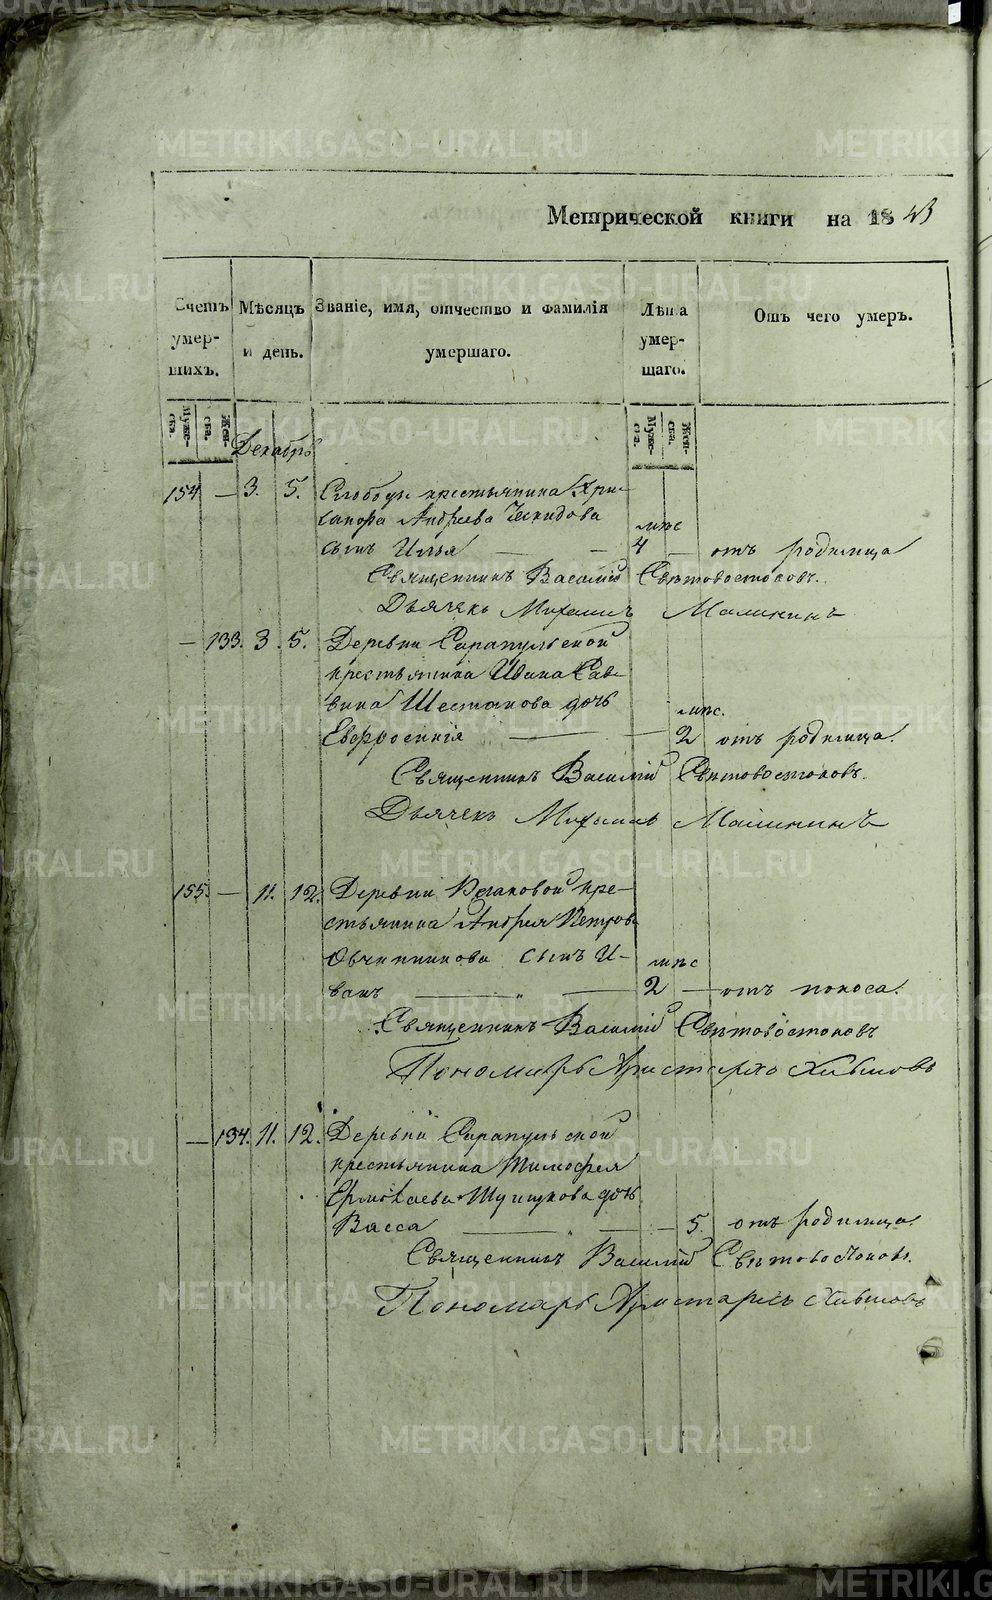 METRIKI.GASO-URAL.RU
Метрической книги на 1843
Счетъ умер- шихъ.
Мѣсяцъ и день.
Званіе, имя, отчество и фамилія умершаго.
Лѣта умер- шаго.
Отъ чего умеръ.
Муже- ска.
Жен- ска.
Муже- ска.
Жен- ска.
Декабрь
154 — 3. 5. Слободы крестьянина Хри-
санфа Андреева Чемидова
мѣс
сынъ Илья — — 4 — отъ родимца
Священникъ Василій Свѣтовостоковъ.
Дьячекъ Михаилъ Малининъ
— 133. 3. 5. Деревни Сарапульской
крестьянина Ивана Сав-
вина Шестакова дочь
мѣс.
Евфросинія — — 2 отъ родимца.
Священникъ Василій Свѣтовостоковъ.
Дьячекъ Михаилъ Малининъ
155. — 11. 12. Деревни кре-
стьянина Андрея Петрова
Овчинникова сынъ И-
мѣс
ванъ — „ — 2 — отъ поноса.
Священникъ Василій Свѣтовостоковъ
Пономарь Аристархъ
— 134. 11. 12. Деревни Сарапульской
крестьянина Тимофея
Ермолаева дочь
Васса — „ — 5. отъ родимца.
Священникъ Василій Свѣтовостоковъ.
Пономарь Аристархъ